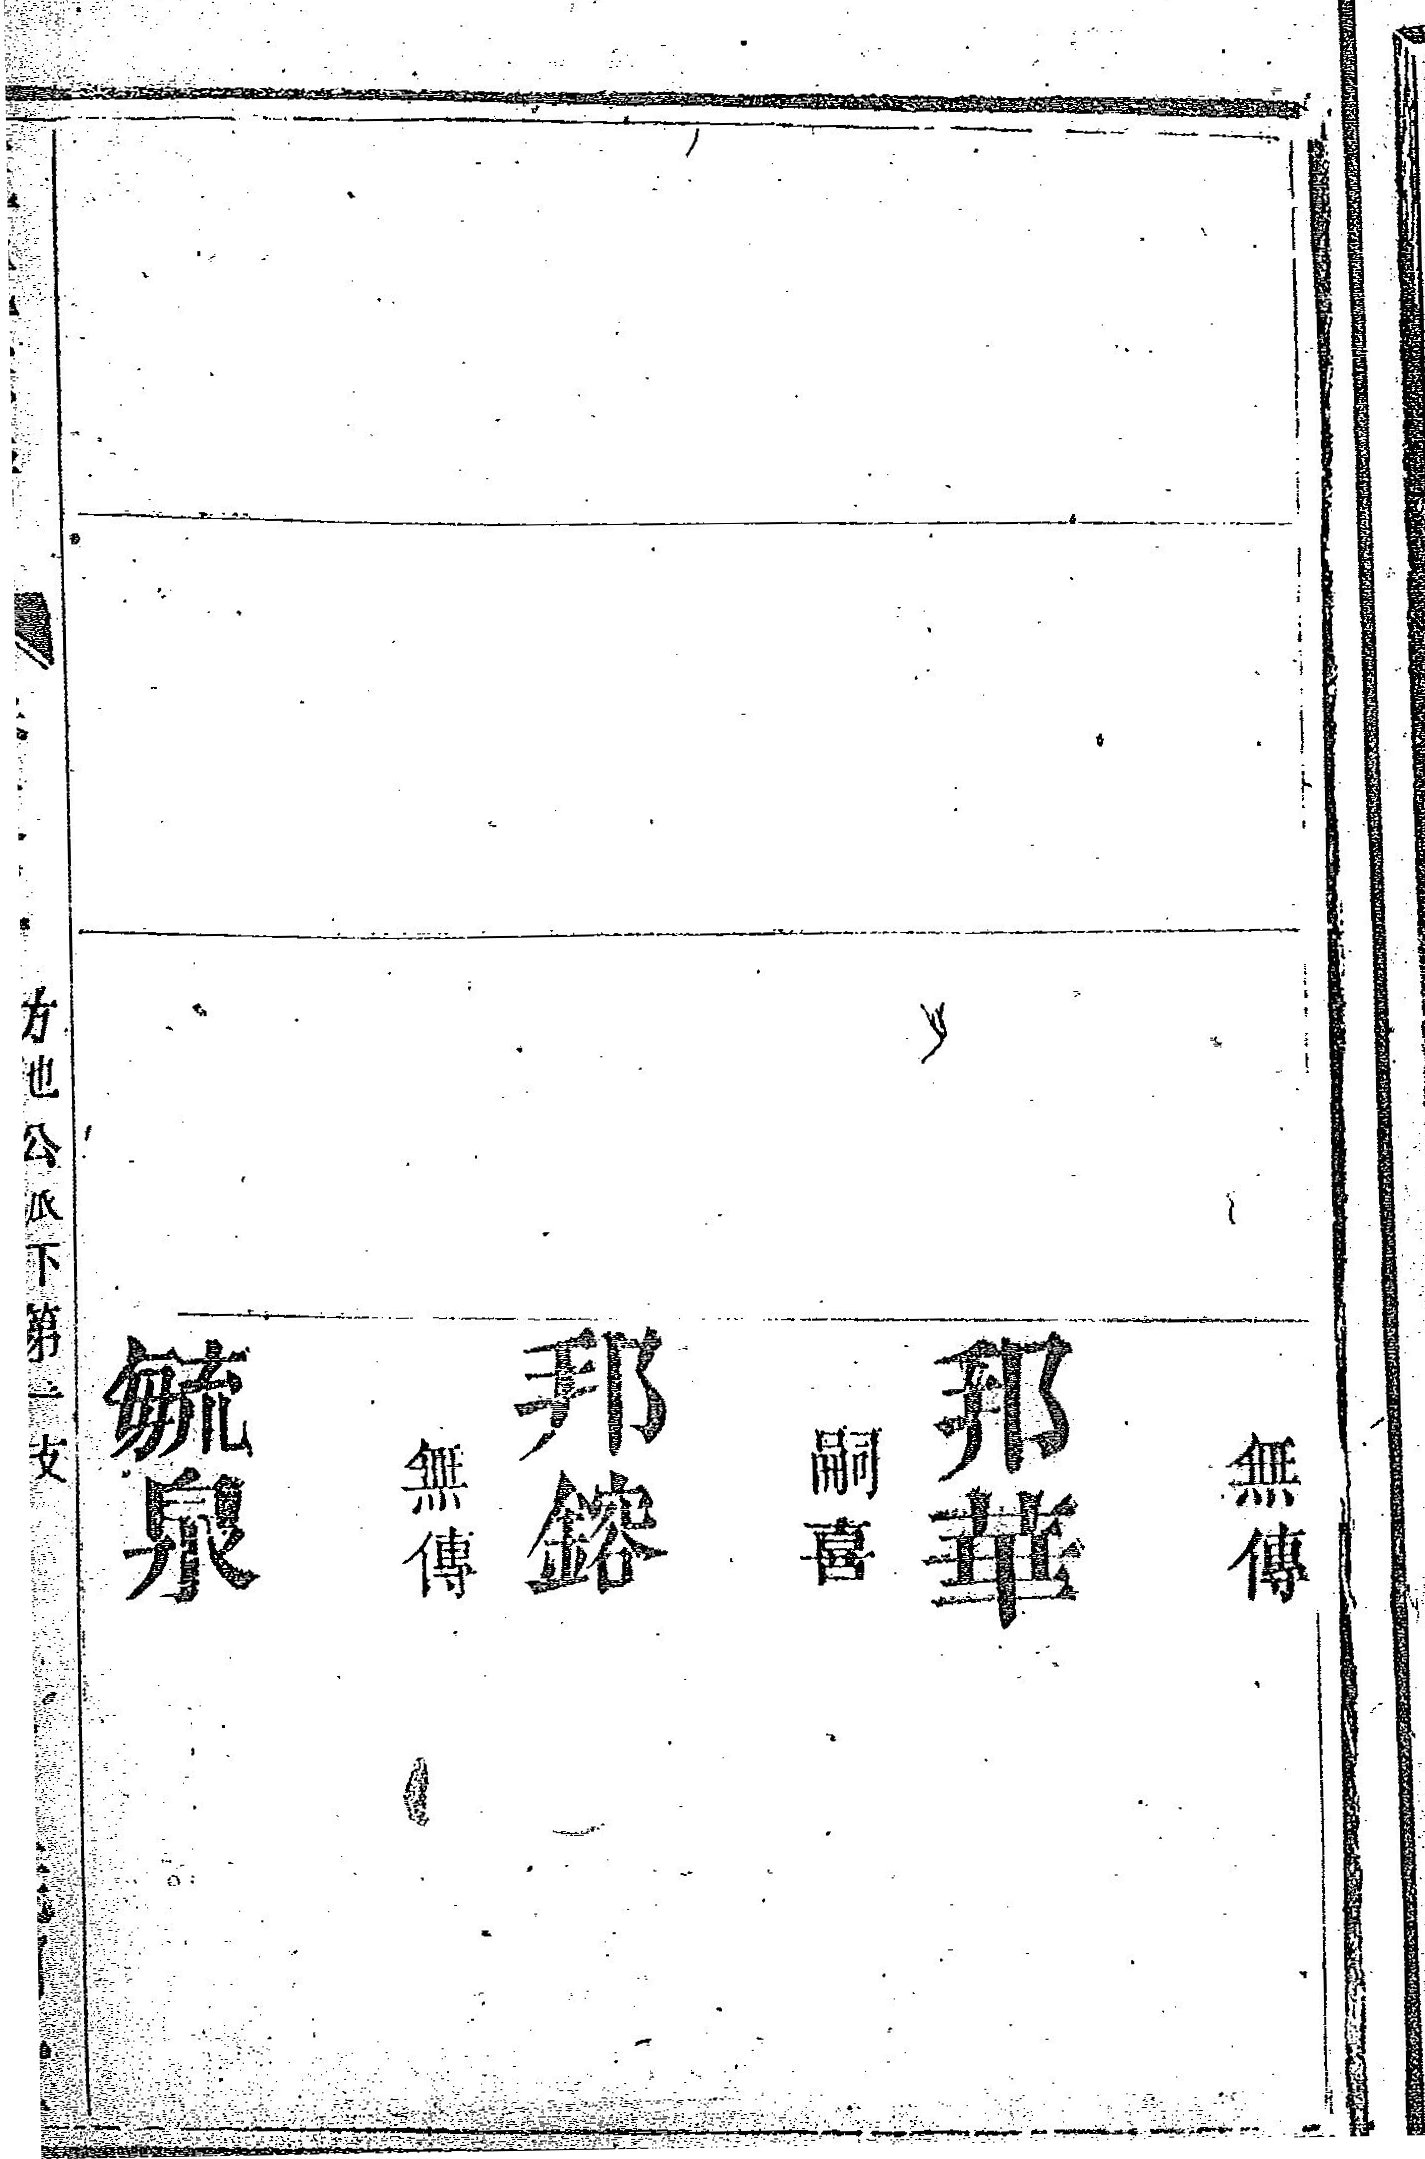 無傳
邦華
嗣喜
邦鎔
無傳
毓泉
方也公派下第一支